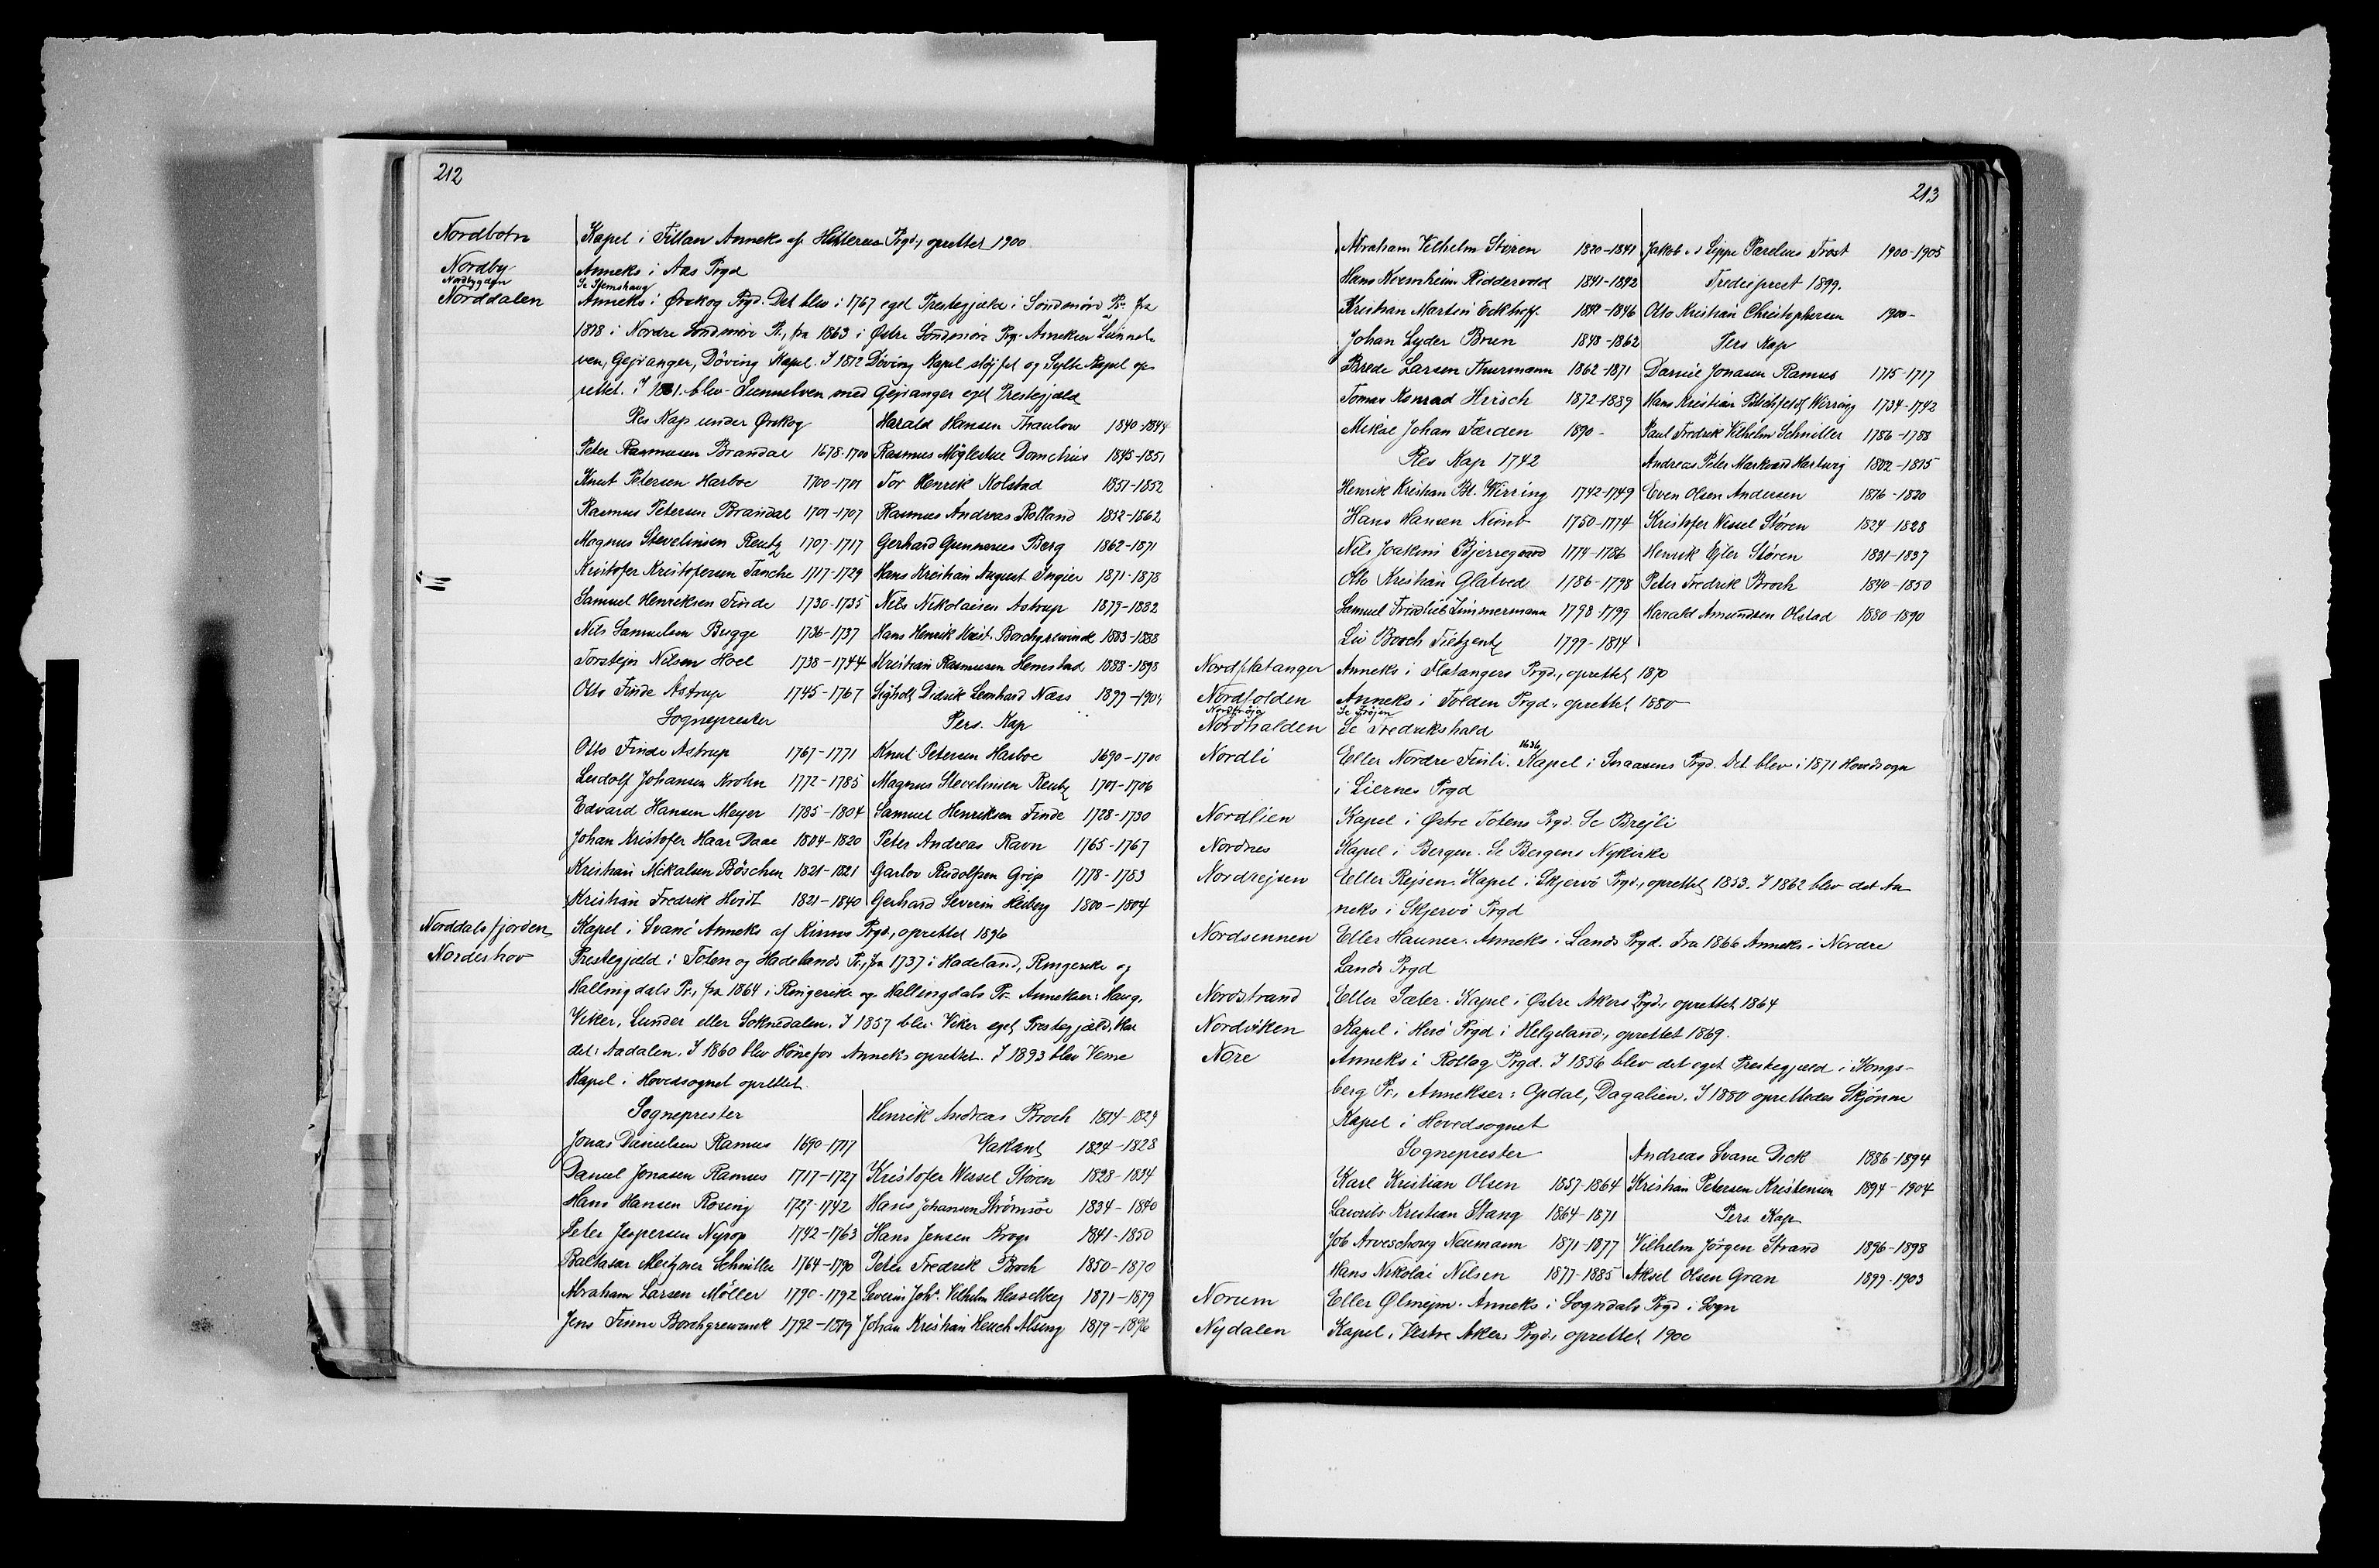 212
Nordbotn Kapel i Fillan Anneks af Hitterens Prgd., oprettet 1900
Nordby Anneks i Aas Prgd
Nordbygden Se Stemshaug
Norddalen Anneks i Ørskog Prgd. Det blev i 1767 eget Prestegjæld i Søndmøre Pr. fra
1818 i Nordre Søndmøre Pr., fra 1863 i Østre Søndmøre Prg. Annekser Sunnel-
ven, Gejranger, Döving Kapel. I 1872 Döving Kapel sløjfet og Sylte Kapel op-
rettet. I 1861. blev Sunnelven med Gejranger eget Prestegjæld
Res Kap under Ørskog
Peter Rasmusen Brandal 1678-1700
Knut Petersen Harboe 1700-1701
Rasmus Petersen Brandal 1701-1707
Magnus Stevelinsen Reutz 1707-1717
Kristofer Kristofersen Tanche 1717-1729
Samuel Henriksen Finde 1730-1735
Nils Samuelsen Bugge 1736-1737
Torstejn Nilsen Hoel 1738-1744
Otto Finde Astrup 1745-1767
Sogneprester
Otto Finde Astrup 1767-1771
Ludolf Johansen Krohn 1772-1785
Edvard Hansen Meyer 1785-1804
Johan Kristofer Haar Daae 1804-1820
Kristian Mikalsen Böschen 1821-1821
Kristian Fredrik Hvidt 1821-1840
Harald Hansen Thaulow 1840-1844
Rasmus Mögelstue Domchius 1845-1851
Tor Henrik Kolstad 1851-1852
Rasmus Andreas Rolland 1852-1862
Gerhard Gunnerus Berg 1862-1871
Hans Kristian August Ingier 1871-1878
Nils Nikolaisen Astrup 1879-1882
Hans Henrik Krist. Borchgrevink 1883-1888
Kristian Rasmusen Hemstad 1888-1898
Sigholt Didrik Leonhard Næss 1899-1904
Pers. Kap
Knut Petersen Harboe 1690-1700
Magnus Stevelinsen Reutz 1701-1706
Samuel Henriksen Finde 1728-1730
Peter Andreas Ravn 1765-1767
Garlov Rudolfsen Grip 1778-1783
Gerhard Severin Heiberg 1800-1804
Norddalsfjorden Kapel i Svanö Anneks af Kinns Prgd., oprettet 1896
Norderhov Prestegjæld i Toten og Hadelands Pr., fra 1737 i Hadeland, Ringerike og
Hallingdals Pr., fra 1864 i Ringerike og Hallingdals Pr. Annekser: Haug,
Viker, Lunder eller Soknedalen. I 1857 blev Viker eget Prestegjæld, kal
det: Aadalen. I 1860 blev Hönefos Anneks oprettet. I 1893 blev Veme
Kapel i Hovedsognet oprettet
Sogneprester
Jonas Danielsen Ramus 1690-1717
Daniel Jonasen Ramus 1717-1727
Hans Hansen Rosing 1727-1742
Peter Jespersen Nyrop 1742-1763
Baltasar Meitzner Schnitler 1764-1790
Abraham Larsen Möller 1790-1792
Jens Finne Borchgrewink 1792-1819
Henrik Andreas Broch 1814-1824
Vakant 1824-1828
Kristofer Wessel Støren 1828-1834
Hans Johansen Strömsöe 1834-1840
Hans Jensen Krog 1841-1850
Peter Fredrik Broch 1850-1870
Severin Johs. Vilhelm Hesselberg 1871-1879
Johan Kristian Heuch Alsing 1879-1896
213
Abraham Vilhelm Støren 1820-1841
Hans Kornheim Riddervold 1841-1842
Kristian Martin Eckhoff 1841-1846
Johan Lyder Brun 1848-1862
Brede Larsen Thurmann 1862-1871
Tomas Konrad Hirsch 1872-1889
Mikal Johan Færden 1890-
Res Kap 1742
Henrik Kristian Bl. Wirring 1742-1749
Hans Hansen Nimb 1750-1774
Nils Joakim Bjerregaard 1774-1786
Otto Kristian Glatved 1786-1798
Samuel Fridlieb Zimmermann 1798-1799
Liv Broch Tietzentz 1799-1814
Jakob Parelius Frost 1900-1905
Trediprest 1899.
Otto Kristian Christophersen 1900-
Pers Kap
Daniel Jonasen Ramus 1715-1717
Hans Kristian Blichfeldt Wirring 1734-1742
Paul Fredrik Vilhelm Schnitler 1786-1788
Andreas Peter Markvard Hartwig 1802-1815
Even Olsen Andersen 1816-1820
Kristofer Wessel Støren 1824-1828
Henrik Ejler Støren 1831-1837
Peter Fredrik Broch 1840-1850
Harald Amundsen Olstad 1880-1890
Nordflatanger Anneks i Flatangers Prgd., oprettet 1870
Nordfolden Anneks i Folden Prgd., oprettet 1880
Nordfröja Se Fröjen
Nordhalden Se Fredrikshald
Nordli Eller Nordre Finli. 1636 Kapel i Snaasens Prgd. Det blev i 1871 Hovedsogn
i Liernes Prgd
Nordlien Kapel i Østre Totens Prgd. Se Brejli
Nordnes Kapel i Bergen. Se Bergens Nykirke
Nordrejsen Eller Rejsen. Kapel i Skjervö Prgd., oprettet 1853. I 1862 blev det An
neks i Skjervö Prgd
Nordsennen Eller Hauner. Anneks i Lands Prgd. Fra 1866 Anneks i Nordre
Lands Prgd
Nordstrand Eller Sæter. Kapel i Østre Akers Prgd., oprettet 1864
Nordviken Kapel i Herö Prgd i Helgeland, oprettet 1869.
Nore Anneks i Rollag Prgd. I 1856 blev det eget Prestegjæld i Kongs-
berg Pr., Annekser: Opdal, Dagalien. I 1880 oprettedes Skjönne
Kapel i Hovedsognet
Sogneprester
Karl Kristian Olsen 1857-1864
Laurits Kristian Stang 1864-1871
Job Arveschoug Neumann 1871-1877
Hans Nikolai Nilsen 1877-1885
Andreas Svane Dick 1886-1894
Kristian Petersen Kristensen 1894-1904
Pers Kap
Vilhelm Jörgen Strand 1896-1898
Aksel Olsen Gran 1899-1903
Norum Eller Ølmejm. Anneks i Sogndals Prgd i Sogn
Nydalen Kapel i Vestre Akers Prgd., oprettet 1900